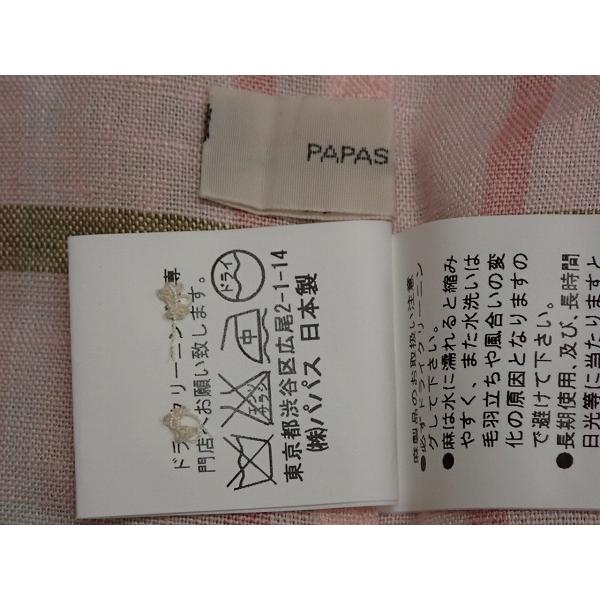 PAPAS
ドラ クリーニン 専
門店へお願い致します。
ドライ
中
エンソ
サラシ
東京都渋谷区広尾2-1-14
(株)パパス 日本製
麻製品のお取扱い注意
●必ずドライクリーニン
グして下さい。
●麻は水に濡れると縮み
やすく、また水洗いは
毛羽立ちや風合いの変
化の原因となりますの
で避けて下さい。
●長期使用、及び、長時間
日光等に当たりますと